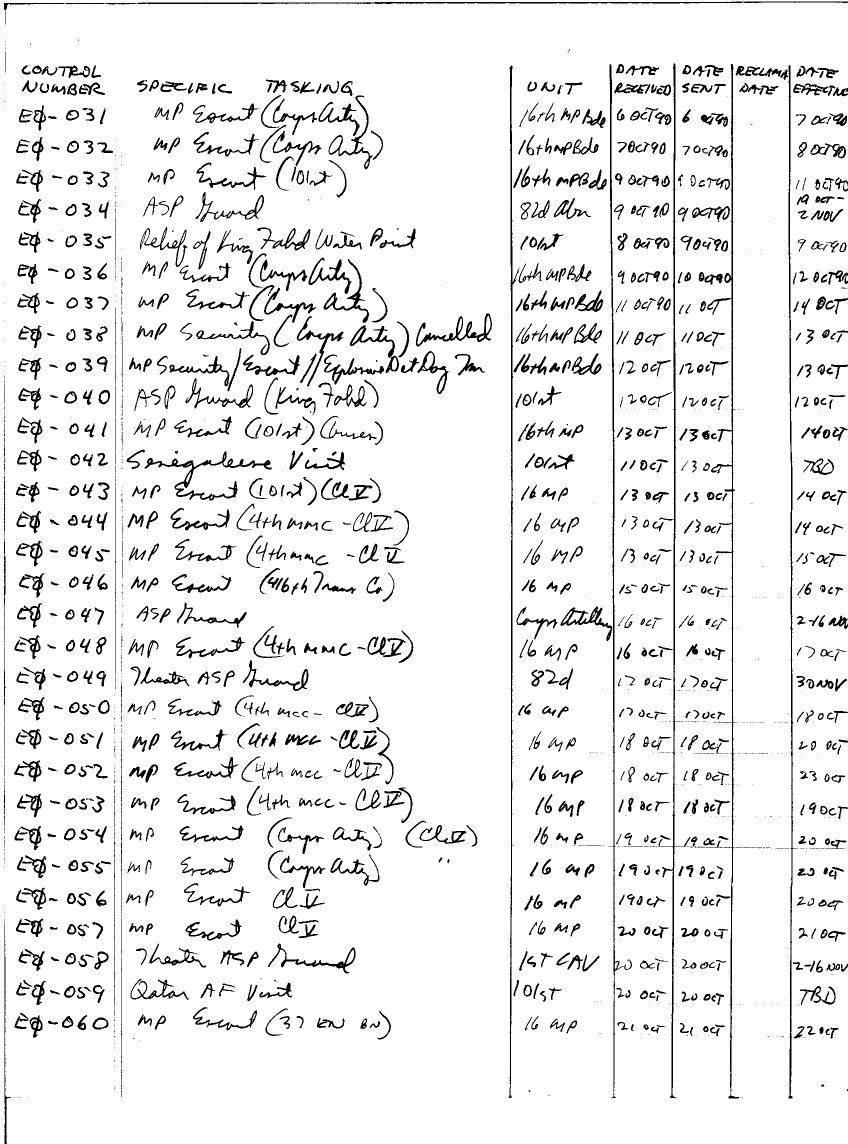 CONTROL NUMBER SPECIFIC TASKING UNIT DATE RECEIVED DATE SENT RECLAMA DATE DATE EFFECTIVE
EØ-031 MP Escort (Corps Arty) 16th MP Bde 6 OCT 90 6 OCT 90 7 OCT 90
EØ-032 MP Escort (Corps Arty) 16th MP Bde 7 OCT 90 7 OCT 90 8 OCT 90
EØ-033 MP Escort (101st) 16th MP Bde 9 OCT 90 9 OCT 90 11 OCT 90
EØ-034 ASP Guard 82d Abn 9 OCT 90 9 OCT 90 19 OCT - 2 NOV
EØ-035 Relief of King Fahd Water Point 101st 8 OCT 90 9 OCT 90 9 OCT 90
EØ-036 MP Escort (Corps Arty) 16th MP Bde 9 OCT 90 10 OCT 90 12 OCT 90
EØ-037 MP Escort (Corps Arty) 16th MP Bde 11 OCT 90 11 OCT 14 OCT
EØ-038 MP Security (Corps Arty) Cancelled 16th MP Bde 11 OCT 11 OCT 13 OCT
EØ-039 MP Security/Escort//Explosive Det Dog Tm 16th MP Bde 12 OCT 12 OCT 13 OCT
EØ-040 ASP Guard (King Fahd) 101st 12 OCT 12 OCT 12 OCT
EØ-041 MP Escort (101st) (buses) 16th MP 13 OCT 13 OCT 14 OCT
EØ-042 Senegaleese Visit 101st 11 OCT 13 OCT TBD
EØ-043 MP Escort (101st) (Cl V) 16 MP 13 OCT 13 OCT 14 OCT
EØ-044 MP Escort (4th MMC - Cl V) 16 MP 13 OCT 13 OCT 14 OCT
EØ-045 MP Escort (4th MMC - Cl V 16 MP 13 OCT 13 OCT 15 OCT
EØ-046 MP Escort (416th Trans Co) 16 MP 15 OCT 15 OCT 16 OCT
EØ-047 ASP Guard Corps Artillery 16 OCT 16 OCT 2-16 NOV
EØ-048 MP Escort (4th MMC - Cl V) 16 MP 16 OCT 16 OCT 17 OCT
EØ-049 Theater ASP Guard 82d 17 OCT 17 OCT 30 NOV
EØ-050 MP Escort (4th MCC - Cl V) 16 MP 17 OCT 17 OCT 18 OCT
EØ-051 MP Escort (4th MCC - Cl V) 16 MP 18 OCT 18 OCT 20 OCT
EØ-052 MP Escort (4th MCC - Cl V) 16 MP 18 OCT 18 OCT 23 OCT
EØ-053 MP Escort (4th MCC - Cl V) 16 MP 18 OCT 18 OCT 19 OCT
EØ-054 MP Escort (Corps Arty) (Cl V) 16 MP 19 OCT 19 OCT 20 OCT
EØ-055 MP Escort (Corps Arty) " 16 MP 19 OCT 19 OCT 20 OCT
EØ-056 MP Escort Cl V 16 MP 19 OCT 19 OCT 20 OCT
EØ-057 MP Escort Cl V 16 MP 20 OCT 20 OCT 21 OCT
EØ-058 Theater ASP Guard 1ST CAV 20 OCT 20 OCT 2-16 NOV
EØ-059 Qatar AF Visit 101st 20 OCT 20 OCT TBD
EØ-060 MP Escort (37 EN BN) 16 MP 21 OCT 21 OCT 22 OCT